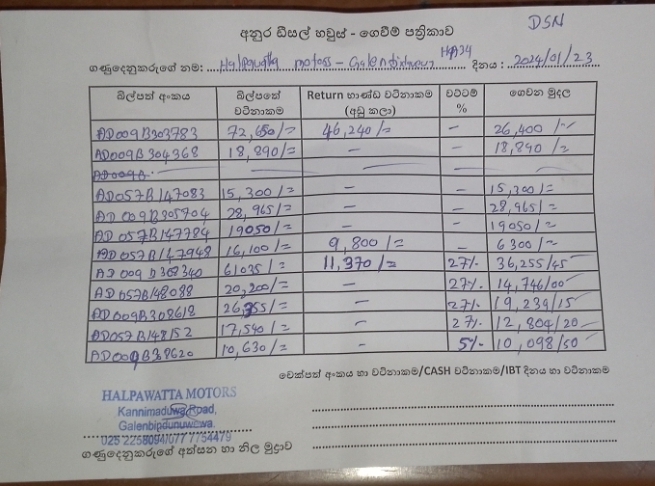 DSN
අනුර ඩීසල් හවුස් - ගෙවීම් පත්‍රිකාව
ගණුදෙනුකරුගේ නම: Halpawatta motors - HA34 දිනය : 2024/01/23
බිල්පත් අංකය බිල්පතේ වටිනාකම Return භාණ්ඩ වටිනාකම (අඩු කලා) වට්ටම් % ගෙවන මුදල
AD009B303783 72,650/= 46,240/= - 26,400/=
AD009B304368 18,890/= - - 18,890/=
AD009B.
AD057B147083 15,300/= - - 15,300/=
AD009B305704 28,965/= - - 28,965/=
AD057B147784 19050/= - - 19050/=
AD057B147948 16,100/= 9,800/= - 6300/=
AD009B308340 61035/= 11,370/= 27% 36,255/45
AD057B148088 20,200/= - 27% 14,746/00
AD009B308618 26,355/= - 27% 19,239/15
AD057B148152 17,540/= - 27% 12,804/20
AD009B38620 10,630/= - 5% 10,098/50
චෙක්පත් අංකය හා වටිනාකම/CASH වටිනාකම/IBT දිනය හා වටිනාකම
HALPAWATTA MOTORS
Kannimaduwa Road,
Galenbindunuwewa.
025 2258094/077 7754479
ගණුදෙනුකරුගේ අත්සන හා නිල මුද්‍රාව